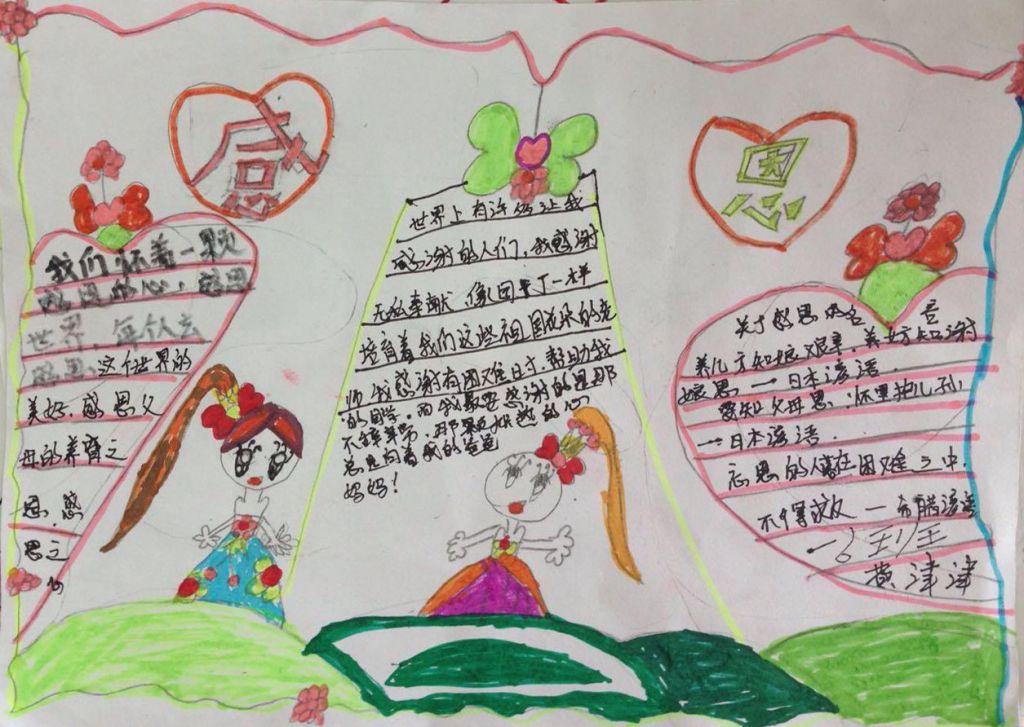 感
恩
我们怀着一颗
感恩的心，感恩
世界，每个人去
感恩，这个世界的
美好。感恩父
母的养育之
恩，感
恩之
心
世界上有许多让我
感谢的人们，我感谢
无私奉献、像园丁一样
培育着我们这些祖国花朵的老
师，我感谢有困难时，帮助我
的同学，而我最要感谢的是那
不辞辛劳
总是向着我的爸爸
妈妈！
关于感恩的名言
养儿方知娘艰辛，养女方知谢
娘恩 — 日本谚语
要知父母恩，怀里抱儿孙
→日本谚语.
忘恩的人落在困难之中，
不得救 — 希腊谚语
黄津津